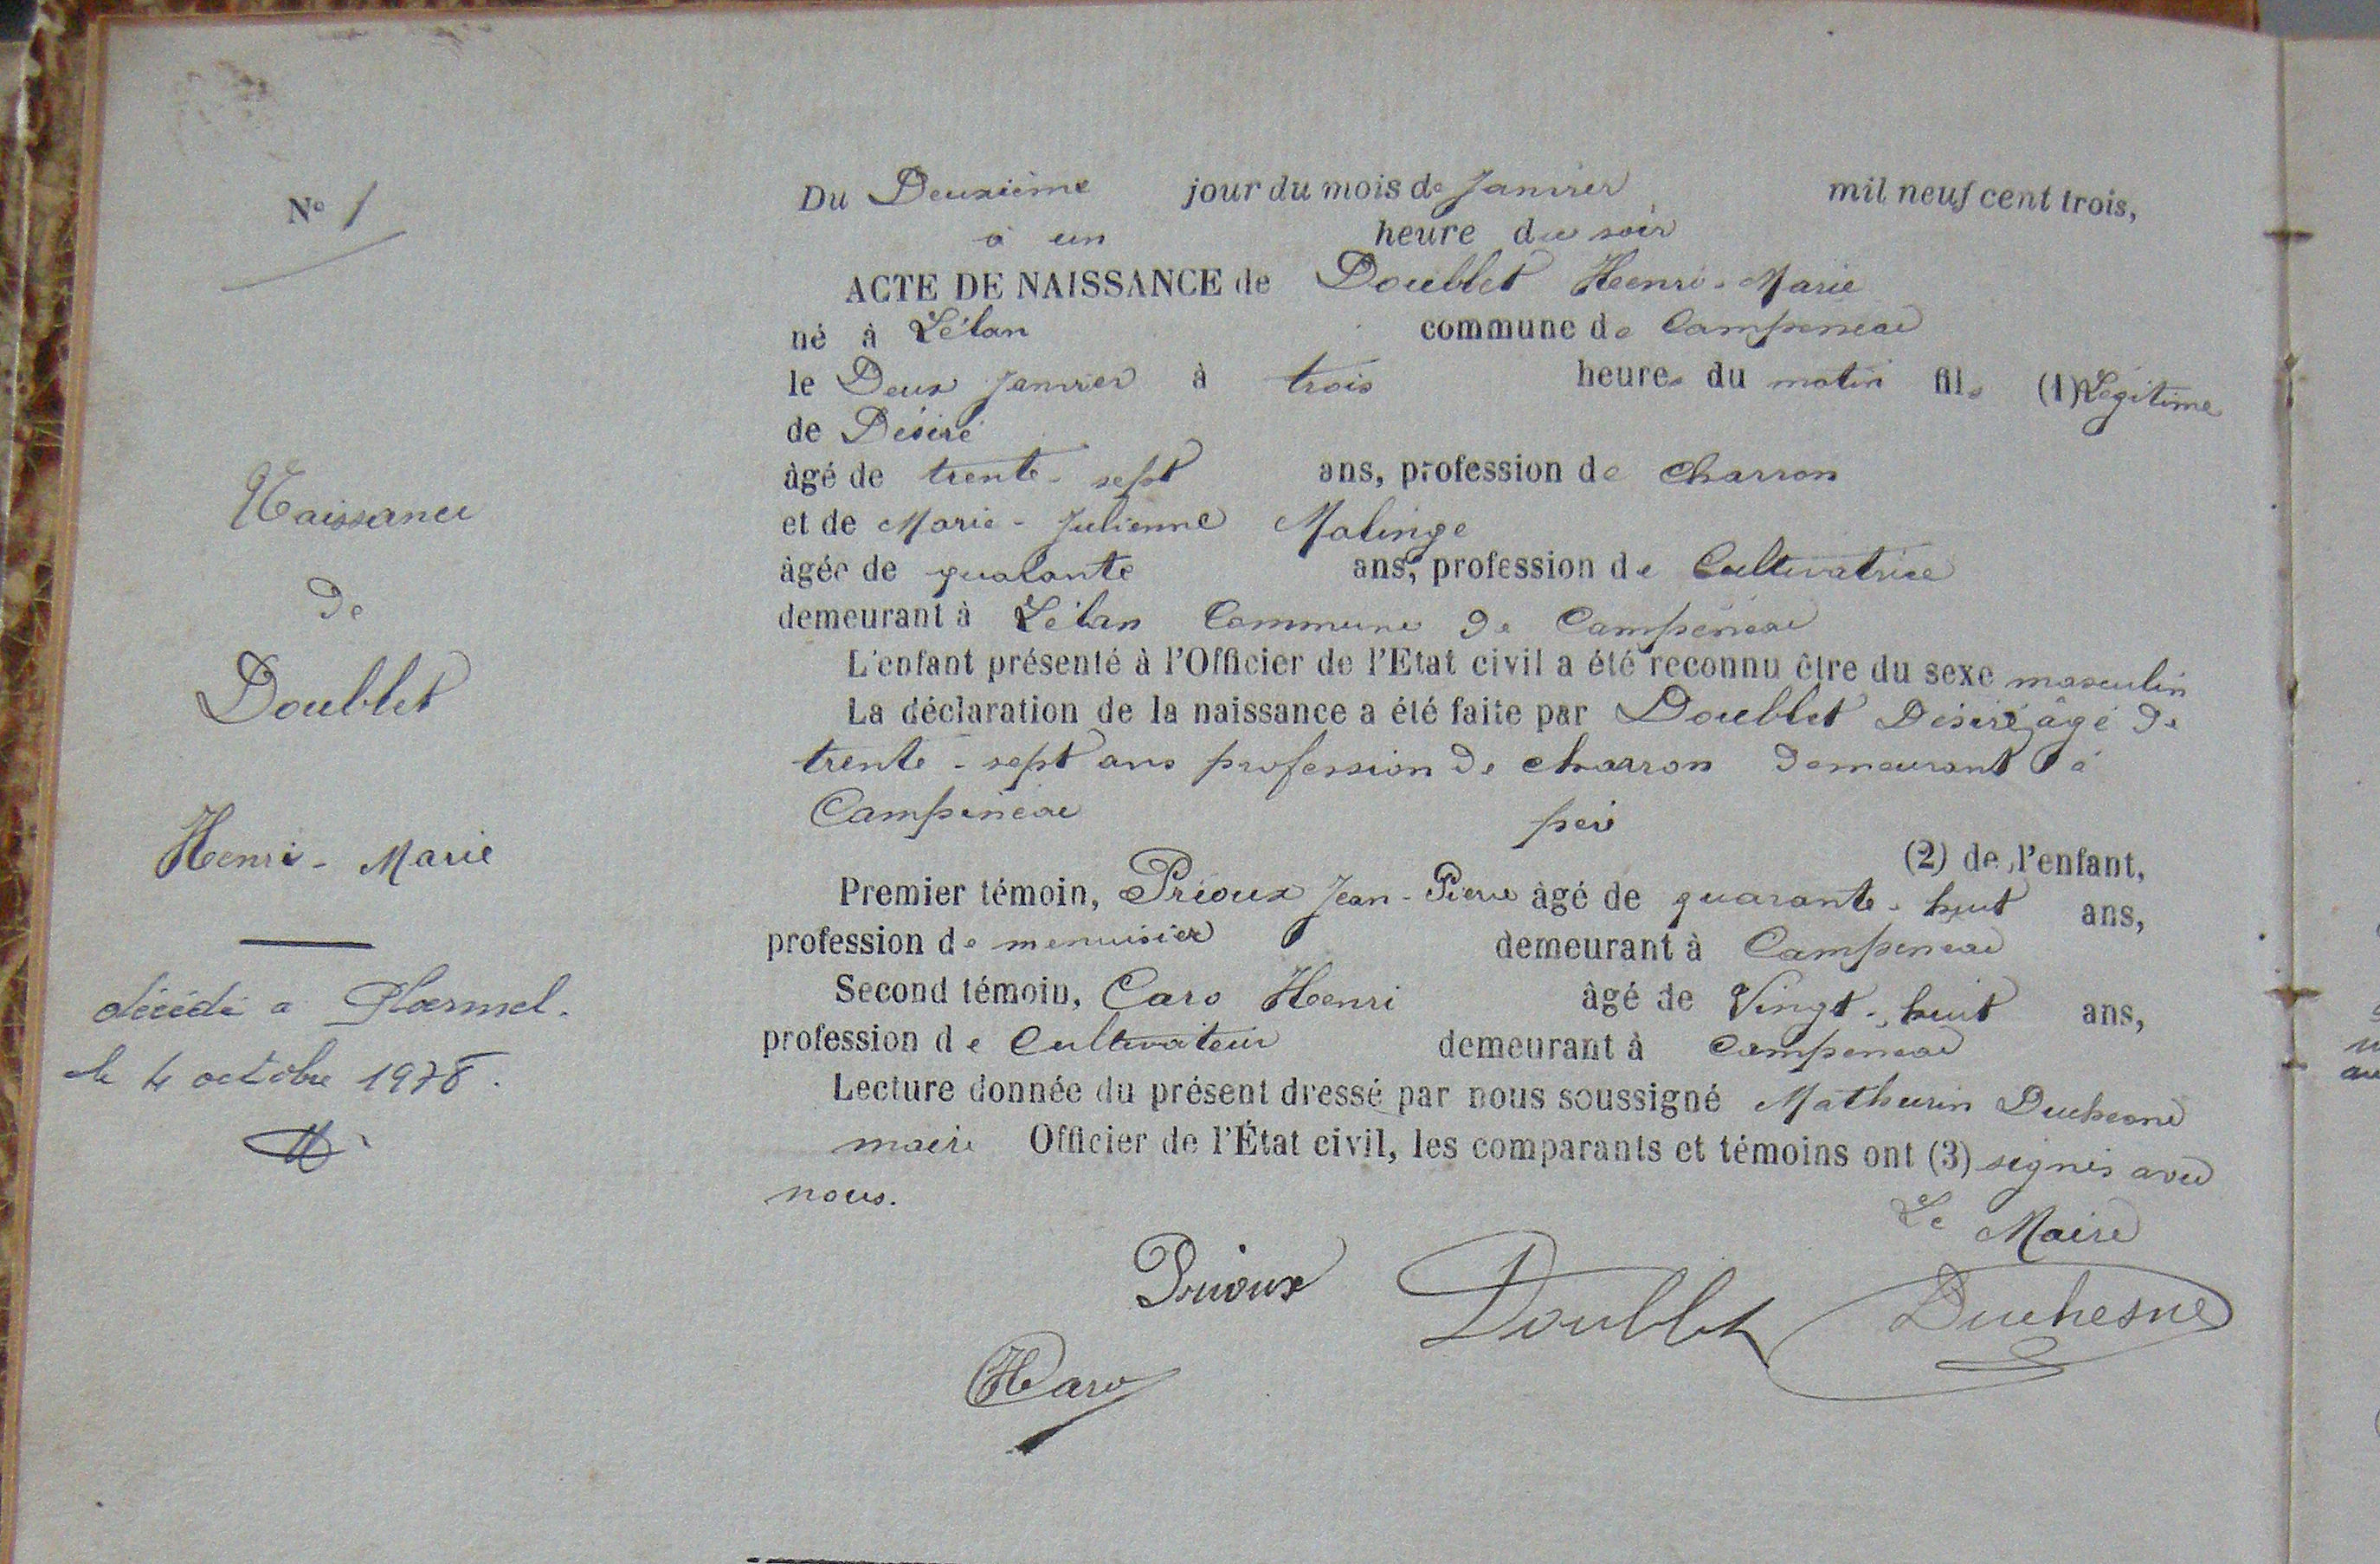 N° 1
Naissance
de
Doublet
Henri - Marie
décédé a Ploermel.
le 4 octobre 1978.
Du Deuxième jour du mois de Janvier mil neuf cent trois,
à un heure du soir
ACTE DE NAISSANCE de Doublet Henri - Marie
né à Lélan commune de Campeneac
le Deux Janvier à trois heures du matin fils (1) Légitime
de Désiré
âgé de trente - sept ans, profession de charron
et de Marie - Julienne Malinge
âgée de quarante ans, profession de Cultivatrice
demeurant à Lélan Commune de Campénéac
L'enfant présenté à l'Officier de l'Etat civil a été reconnu être du sexe masculin
La déclaration de la naissance a été faite par Doublet Désiré, âgé de
trente - sept ans profession de charron demeurant à
Campénéac père
(2) de l'enfant,
Premier témoin, Prioux Jean - Pierre âgé de quarante - huit ans,
profession de menuisier demeurant à Campeneac
Second témoin, Caro Henri âgé de Vingt - huit ans,
profession de Cultivateur demeurant à Campeneac
Lecture donnée du présent dressé par nous soussigné Mathurin Duchesne
maire Officier de l'État civil, les comparants et témoins ont (3) signés avec
nous.
Le Maire
Prioux Doublet Duchesne
HCaro